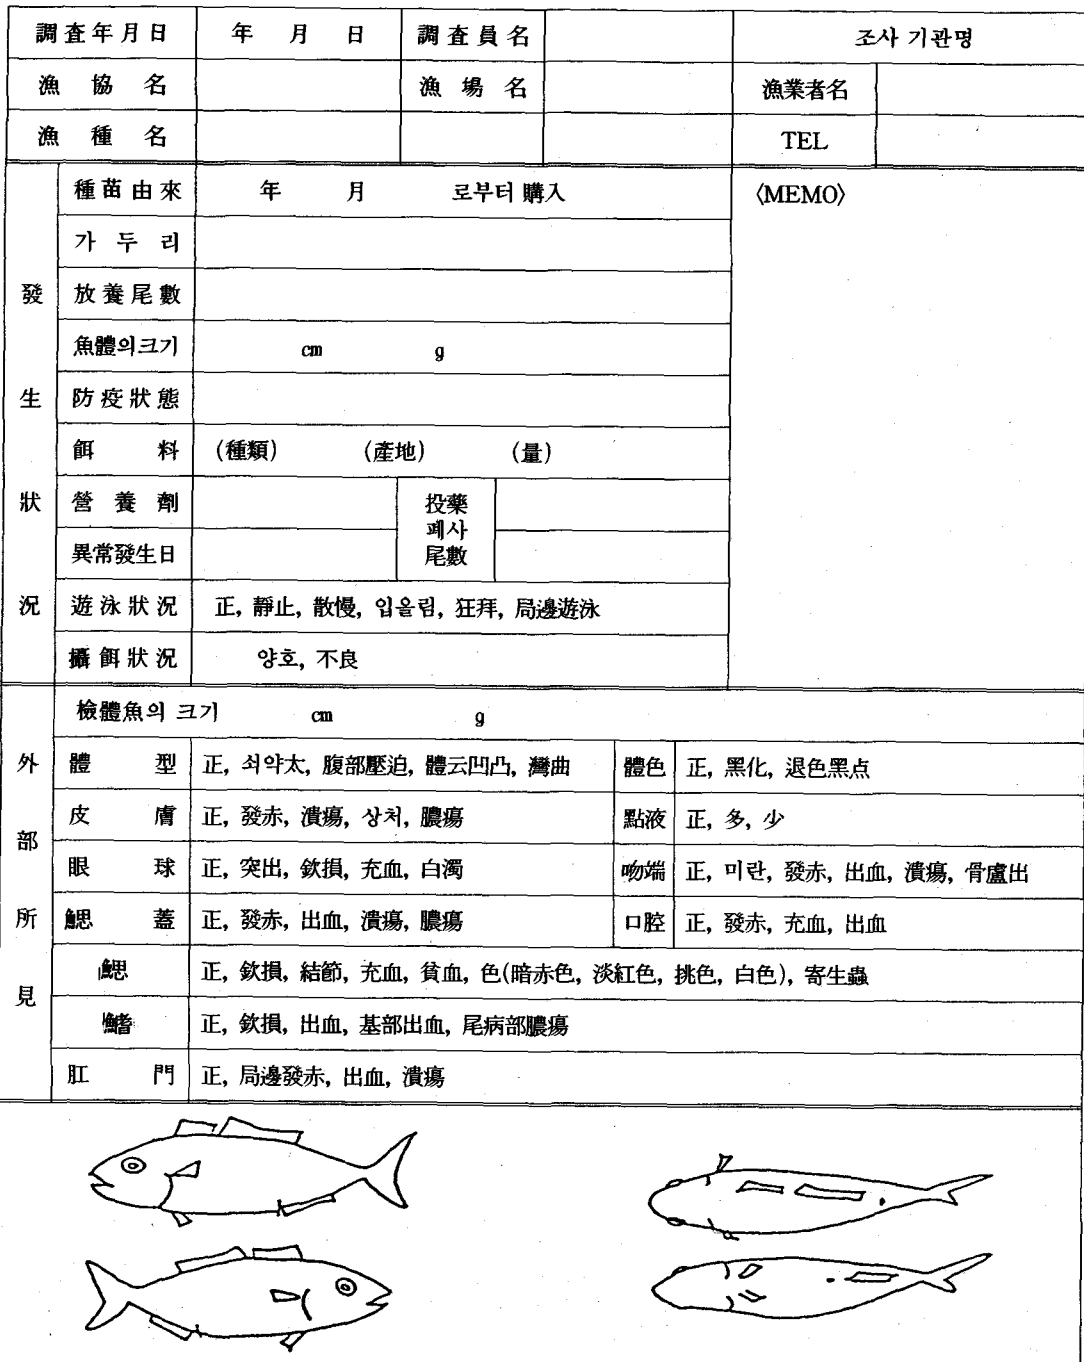 調査年月日 年 月 日 調査員名 조사 기관명
漁協名 漁場名 漁業者名
漁種名 TEL
發生狀況
種苗由來 年 月 로부터 購入 〈MEMO〉
가두리
放養尾數
魚體의크기 cm g
防疫狀態
餌料 (種類) (產地) (量)
營養劑 投藥
폐사
異常發生日 尾數
遊泳狀況 正, 靜止, 散慢, 입올림, 狂拜, 局邊遊泳
攝餌狀況 양호, 不良
外部所見
檢體魚의 크기 cm g
體型 正, 쇠약太, 腹部壓迫, 體云凹凸, 灣曲 體色 正, 黑化, 退色黑点
皮膚 正, 發赤, 潰瘍, 상처, 膿瘍 點液 正, 多, 少
眼球 正, 突出, 欽損, 充血, 白濁 吻端 正, 미란, 發赤, 出血, 潰瘍, 骨盧出
鰓蓋 正, 發赤, 出血, 潰瘍, 膿瘍 口腔 正, 發赤, 充血, 出血
鰓 正, 欽損, 結節, 充血, 貧血, 色(暗赤色, 淡紅色, 挑色, 白色), 寄生蟲
鰭 正, 欽損, 出血, 基部出血, 尾病部膿瘍
肛門 正, 局邊發赤, 出血, 潰瘍